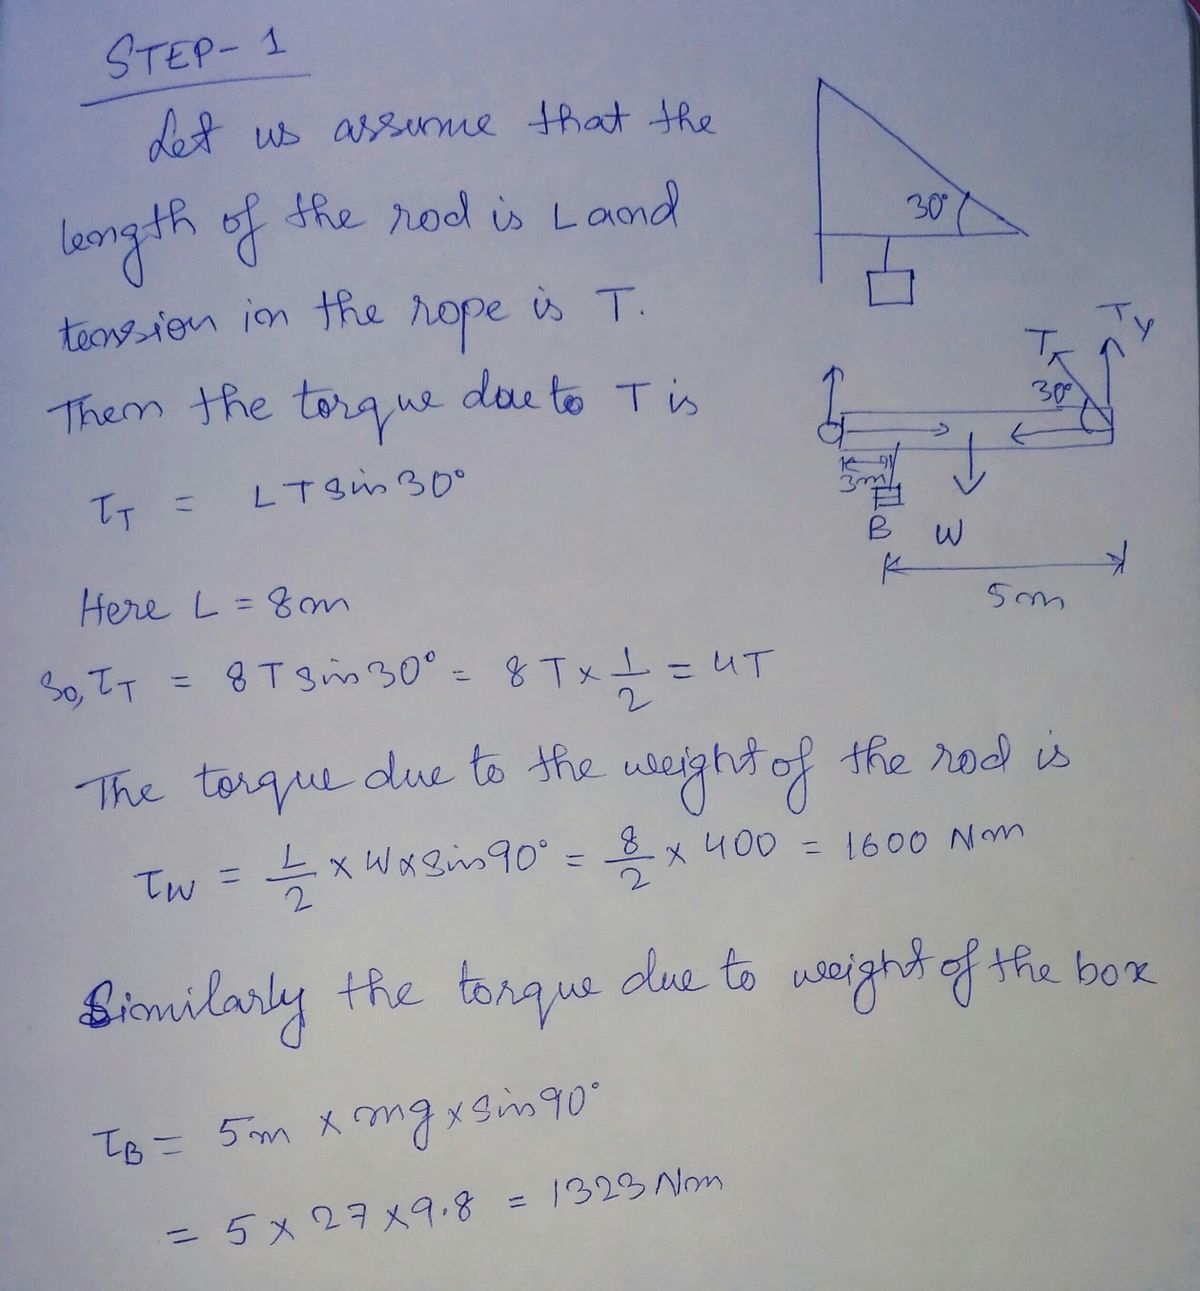 STEP-1
Let us assume that the
length of the rod is L and
tension in the rope is T.
Then the torque due to T is
τ_T = LT sin 30°
Here L = 8m
So, τ_T = 8 T sin 30° = 8 T x 1/2 = 4T
The torque due to the weight of the rod is
τ_W = L/2 x W x sin 90° = 8/2 x 400 = 1600 Nm
Similarly the torque due to weight of the box
τ_B = 5m x mg x sin 90°
= 5 x 27 x 9.8 = 1323 Nm
30°
T
T_y
30°
3m
B
W
5m